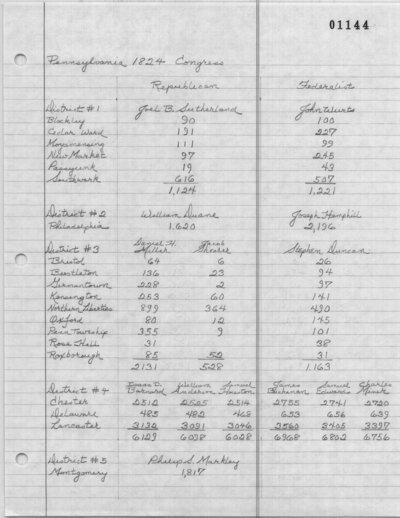 01144
Pennsylvania 1824 Congress
Republican Federalist
District #1 Joel B. Sutherland John Wurts
Blockley 90 100
Cedar Ward 191 227
Moyamensing 111 99
New Market 97 245
Passyunk 19 43
Southwark 616 507
1,124 1,221
District #2 William Duane Joseph Hemphill
Philadelphia 1,620 2,196
Daniel H. Jacob
District #3 Miller Shearer Stephen Duncan
Bristol 64 6 26
Bustleton 136 23 94
Germantown 228 2 97
Kensington 253 60 141
Northern Liberties 899 364 490
Oxford 80 12 145
Penn Township 355 9 101
Rose Hill 31 38
Roxborough 85 52 31
2131 528 1,163
Isaac D. William Samuel James Samuel Charles
District #4 Barnard Anderson Houston Buchanan Edwards Miner
Chester 2512 2505 2514 2755 2741 2720
Delaware 485 482 468 653 656 639
Lancaster 3132 3091 3046 3560 3405 3397
6129 6078 6028 6968 6802 6756
District #5 Philip S. Markley
Montgomery 1,817